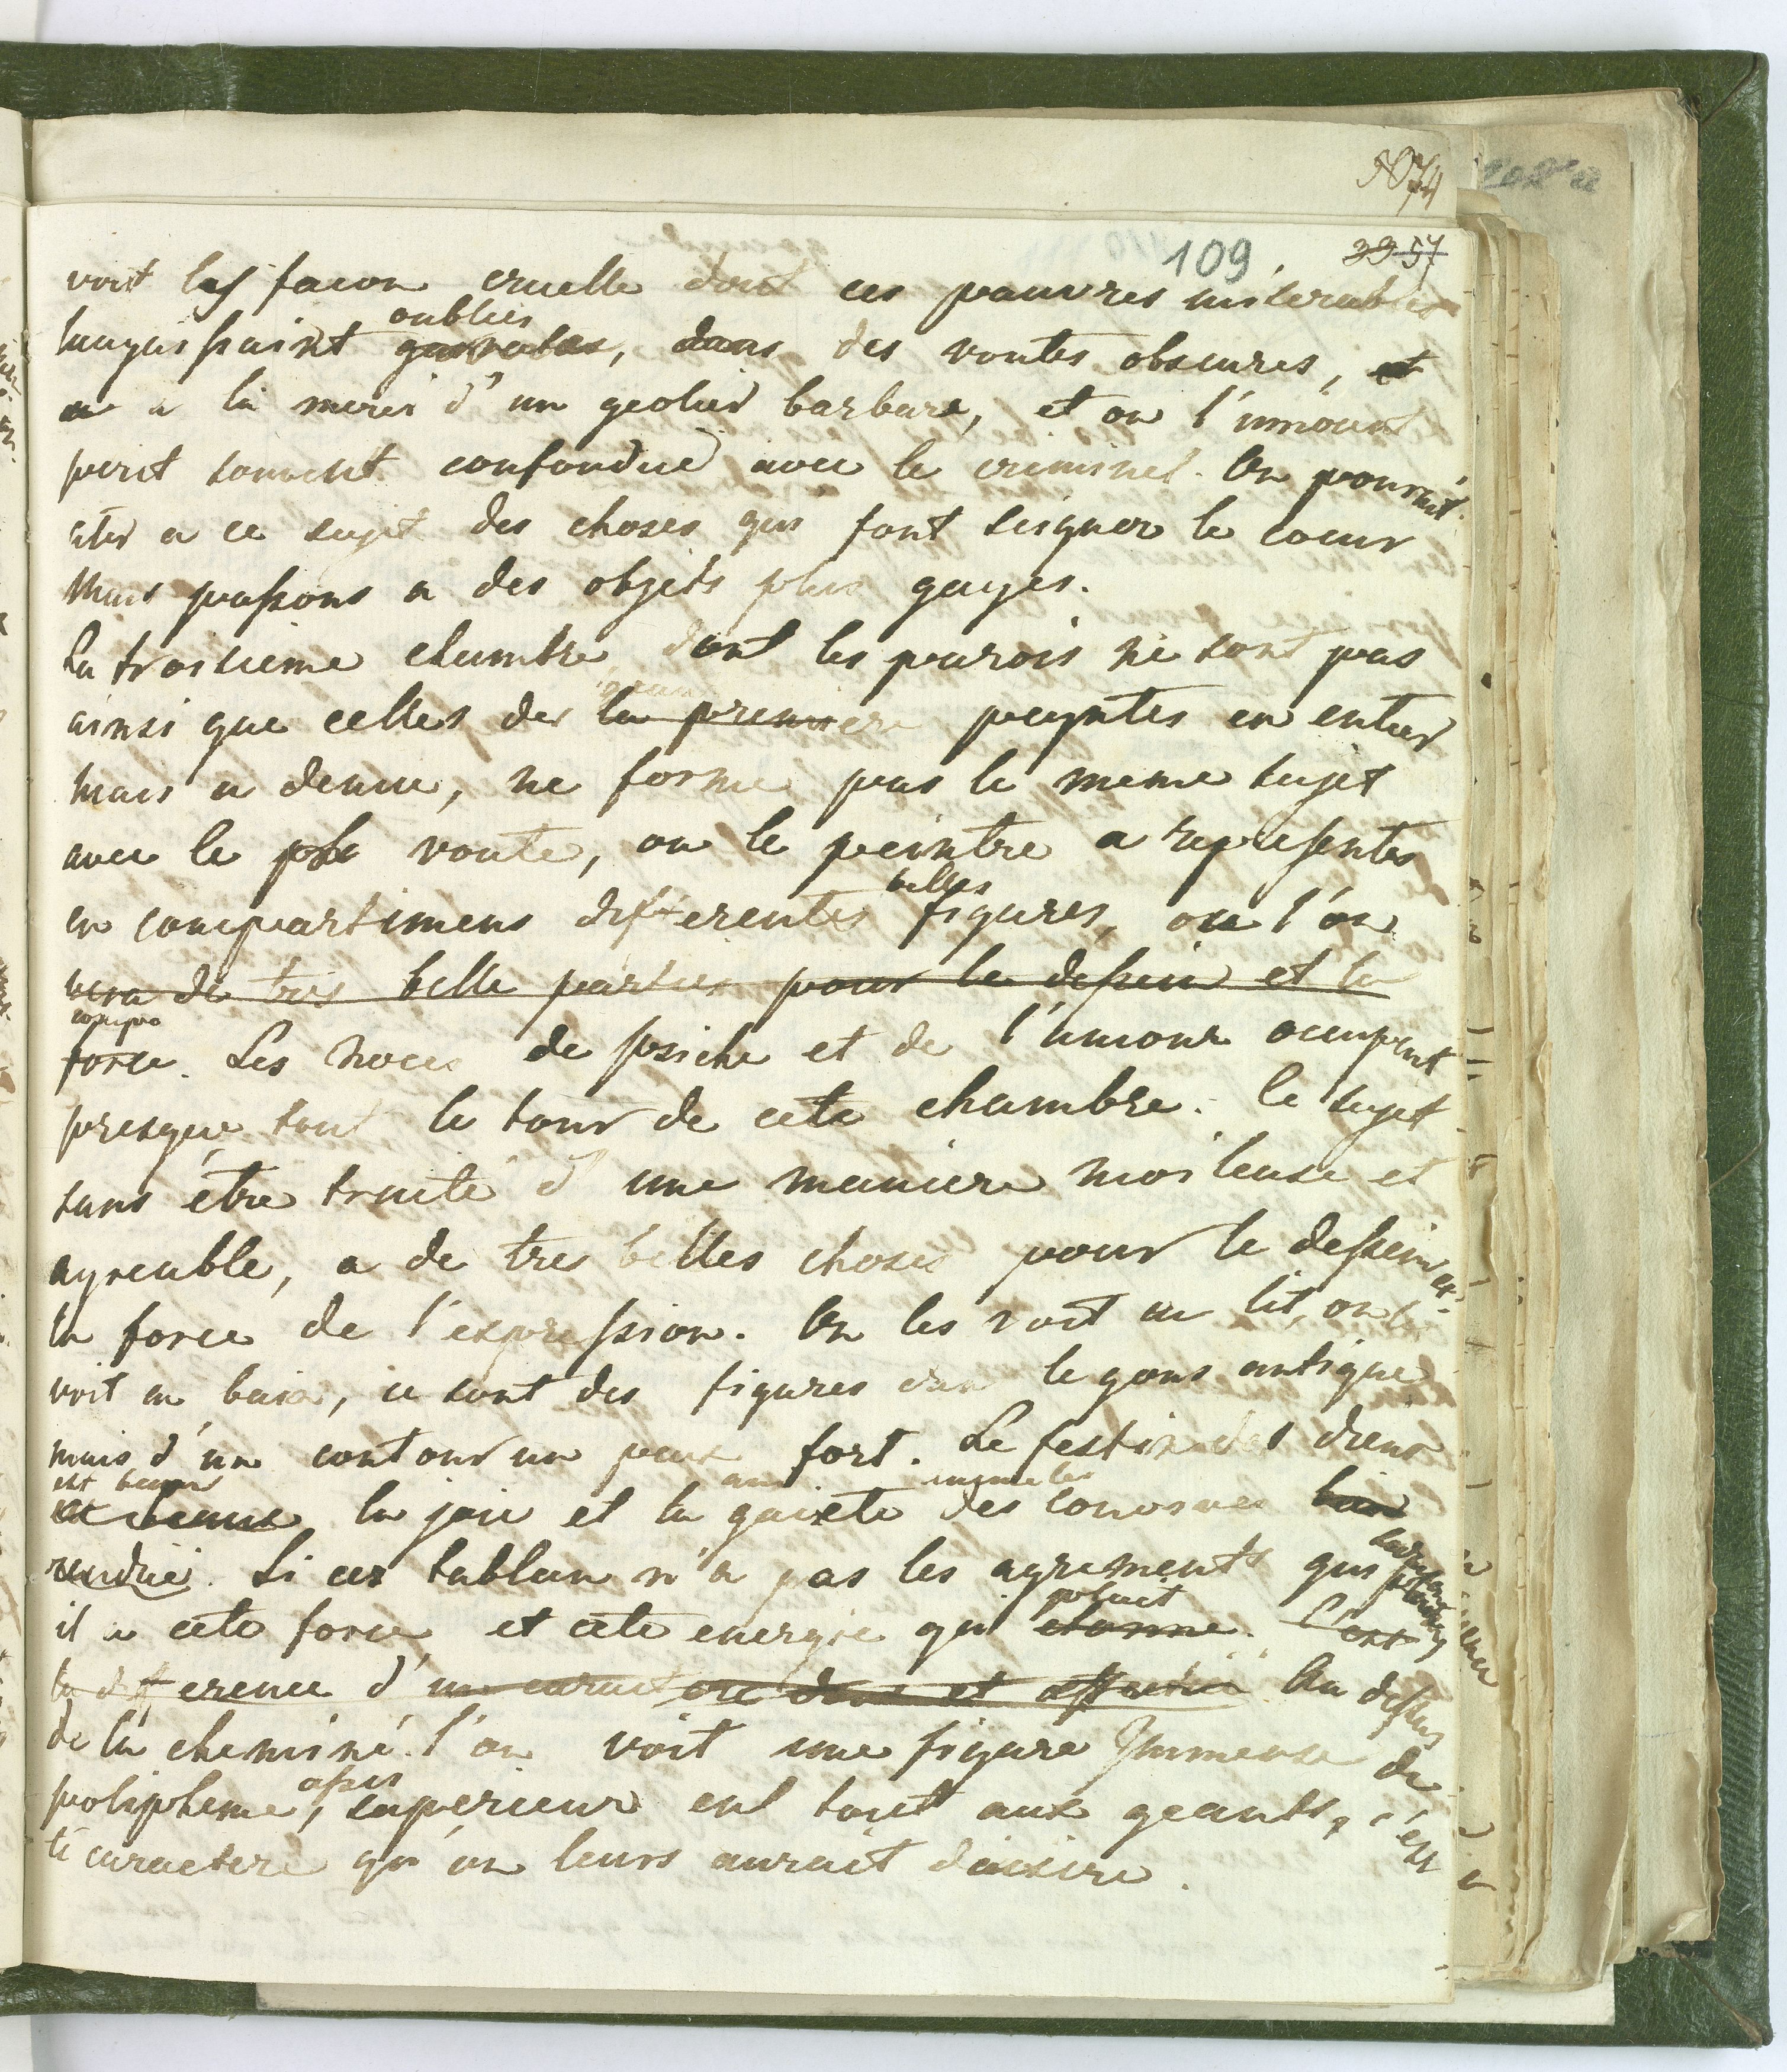 5074
109 39 57
voit la façon cruelle dont ces pauvres miserables
oublies
languissaint garrotes, dans des voutes obscures, et
a la merci d'un geolier barbare, et ou l'innocent
perit souvent confondue avec le criminel. On pourrait
citer a ce sujet des choses qui font seigner le coeur
Mais passons a des objets plus gayes.
La troisieme chambre dont les parois ne sont pas
ainsi que celles der la premiere peyntes en entier
mais a demie, ne forme pas le meme sujet
avec le voute, ou le peintre a representes
belles
en compartimens differentes figures, ou l'on
vera de tres belle parties pour le dessein et la
compo
force. Les noces de psiche et de l'amour occupent
presque tout le tour de cete chambre. Ce sujet
sans être traité d'une maniere moileuse et
agreable, a de tres belles choses pour le dessein et
la force de l'expression. On les voit au lit, on les
voit en bain, ce sont des figures dan le gous antique
mais d'un contour un peux fort. Le festin des dieux
est beau
et beau la joie et la gaiete des convives bien
rendue. Si ces tablau n'a pas les agrements qui
plait
il a cete force et cete energie qui etonne. C'est
la difference d'un caractere doux et Au dessus
de la cheminé l'on voit une figure Immense de
assis
polipheme, superieur en tout aux geants, c'est
le caractere qu'on leurs aurait desire.